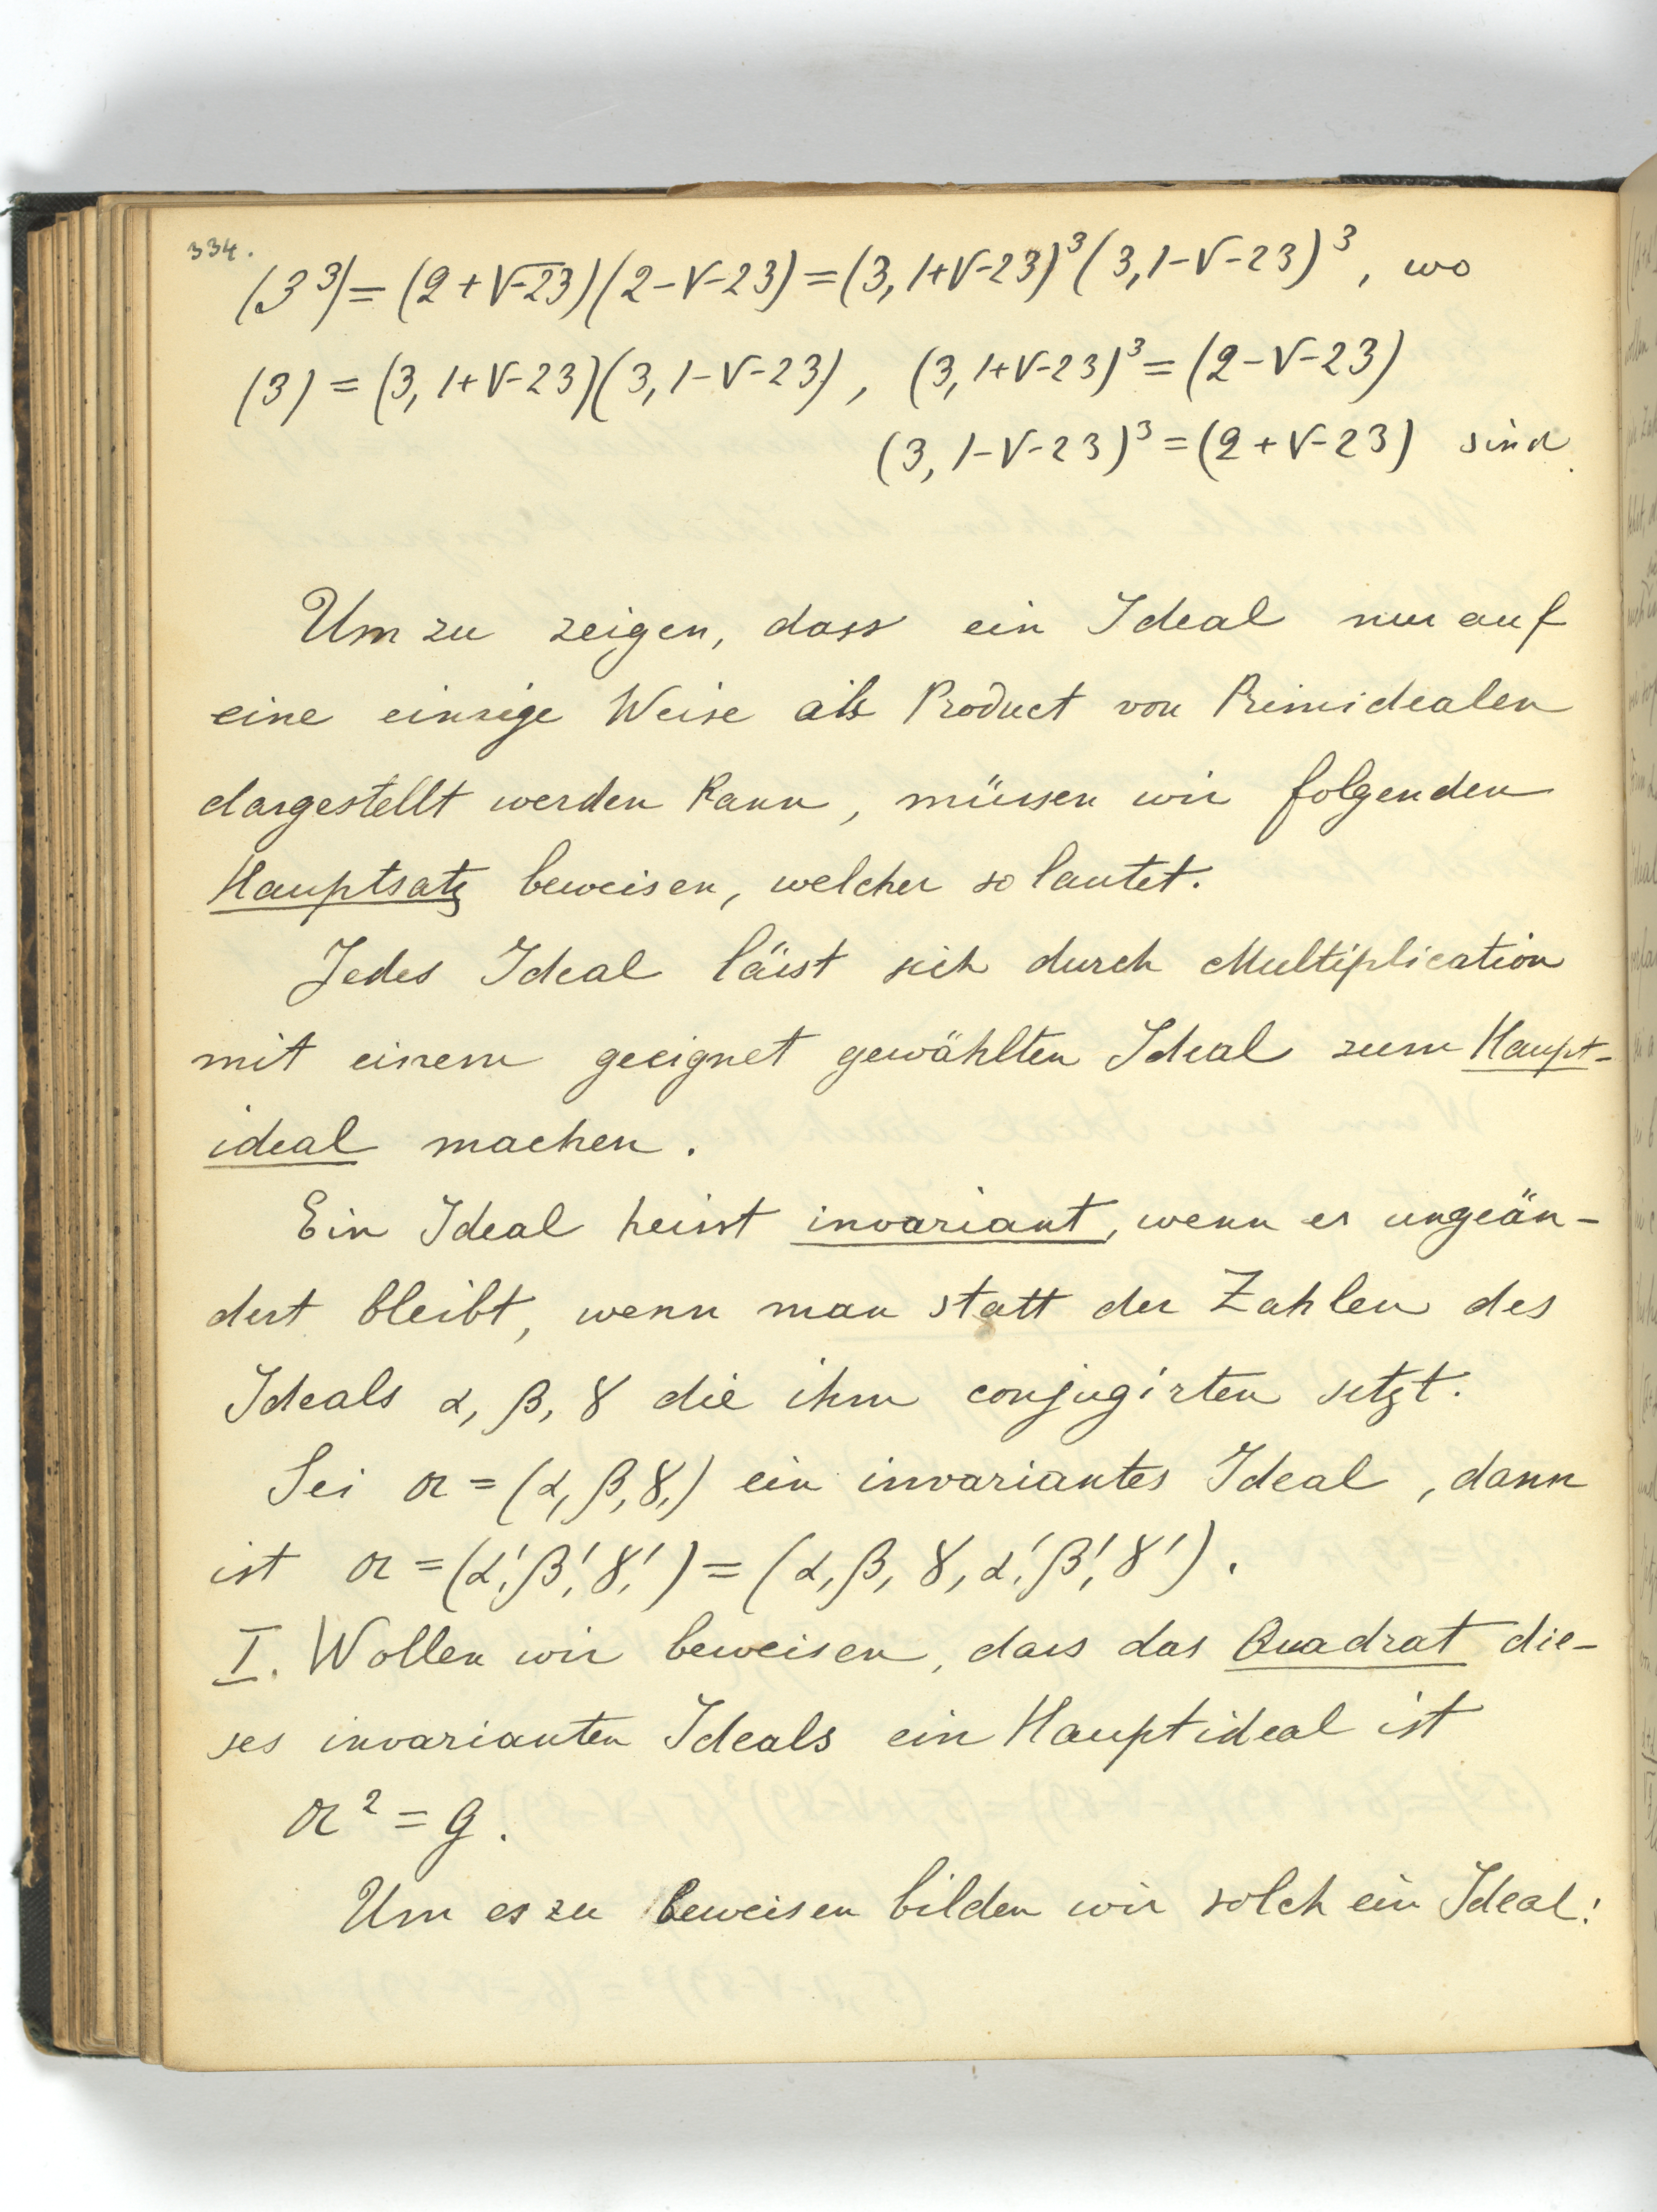 334.
(3³) = (2+√-23)(2-√-23) = (3, 1+√-23)³(3, 1-√-23)³, wo
(3) = (3, 1+√-23)(3, 1-√-23), (3, 1+√-23)³ = (2-√-23)
(3, 1-√-23)³ = (2+√-23) sind.
Um zu zeigen, dass ein Ideal nur auf
eine einzige Weise als Product von Primidealen
dargestellt werden kann, müssen wir folgenden
Hauptsatz beweisen, welcher so lautet.
Jedes Ideal lässt sich durch Multiplication
mit einem geeignet gewählten Ideal zum Haupt-
ideal machen.
Ein Ideal heisst invariant, wenn es ungeän-
dert bleibt, wenn man statt der Zahlen des
Ideals α, β, γ die ihm conjugirten setzt.
Sei α = (α, β, γ,) ein invariantes Ideal, dann
ist α = (α', β', γ', ) = (α, β, γ, α', β', γ').
I. Wollen wir beweisen, dass das Quadrat die-
ses invarianten Ideals ein Hauptideal ist
α² = g.
Um es zu beweisen bilden wir solch ein Ideal: